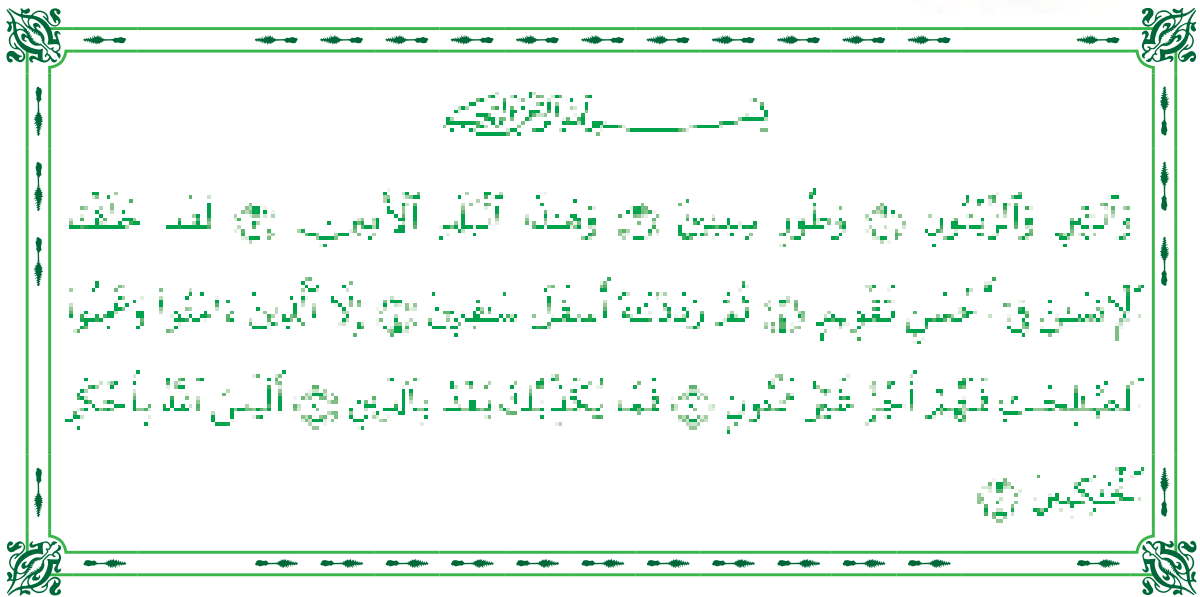 بِسْمِ ٱللَّهِ ٱلرَّحْمَٰنِ ٱلرَّحِيمِ
وَٱلتِّينِ وَٱلزَّيْتُونِ ۝١ وَطُورِ سِينِينَ ۝٢ وَهَٰذَا ٱلْبَلَدِ ٱلْأَمِينِ ۝٣ لَقَدْ خَلَقْنَا
ٱلْإِنسَٰنَ فِىٓ أَحْسَنِ تَقْوِيمٍ ۝٤ ثُمَّ رَدَدْنَٰهُ أَسْفَلَ سَٰفِلِينَ ۝٥ إِلَّا ٱلَّذِينَ ءَامَنُوا۟ وَعَمِلُوا۟
ٱلصَّٰلِحَٰتِ فَلَهُمْ أَجْرٌ غَيْرُ مَمْنُونٍ ۝٦ فَمَا يُكَذِّبُكَ بَعْدُ بِٱلدِّينِ ۝٧ أَلَيْسَ ٱللَّهُ بِأَحْكَمِ
ٱلْحَٰكِمِينَ ۝٨